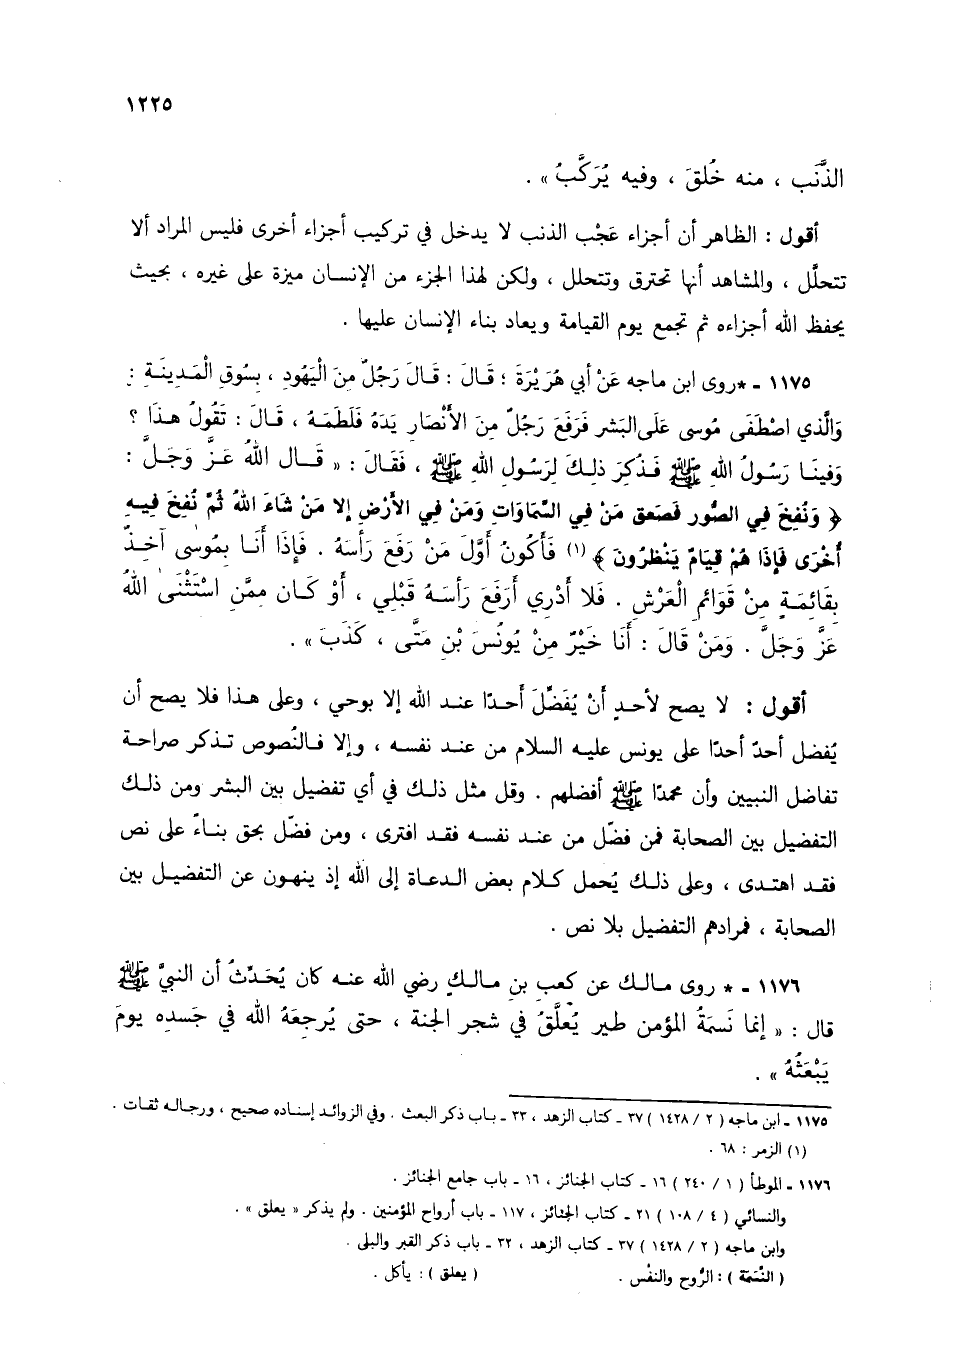 ١٢٢٥
الذَّنَب ، منه خُلقَ ، وفيه يُرَكَّبُ » .
أقول : الظاهر أن أجزاء عَجْب الذنب لا يدخل في تركيب أجزاء أخرى فليس المراد ألا
تتحلَّل ، والمشاهد أنها تحترق وتتحلل ، ولكن لهذا الجزء من الإنسان ميزة على غيره ، بحيث
يحفظ الله أجزاءه ثم تجمع يوم القيامة ويعاد بناء الإنسان عليها .
١١٧٥ ـ *روى ابن ماجه عَنْ أبي هُرَيْرَةَ ؛ قَـالَ : قَـالَ رَجُلٌ مِنَ الْيَهُودِ ، بِسُوقِ الْمَدِينَـةِ :
وَالَّذِي اصْطَفَى مُوسى عَلَى البَشر فَرَفَع رَجُلٌ مِنَ الأَنْصَارِ يَدَهُ فَلَطَمَـهُ ، قَـالَ : تَقُولُ هـذَا ؟
وَفِينَـا رَسُولُ اللهِ ﷺ فَـذُكِرَ ذلِـكَ لِرَسُولِ اللهِ ﷺ ، فَقَـالَ : « قَـال اللهُ عَـزَّ وَجَـلَّ :
﴿ وَنُفِخَ فِي الصُّور فَصَعِقَ مَنْ فِي السَّمَاوَاتِ وَمَنْ فِي الأَرْضِ إلا مَنْ شَاءَ اللهُ ثُمَّ نُفِخَ فِيـهِ
أُخْرَى فَإِذَا هُمْ قِيَامٌ يَنْظُرُونَ ﴾ (١) فَأَكُونُ أَوَّلَ مَنْ رَفَعَ رَأْسَهُ . فَإِذَا أَنَـا بِمُوسَى آخِـذٌ
بِقَائِمَـةٍ مِنْ قَوَائِمِ الْعَرْشِ . فَلا أَدْرِي أَرَفَعَ رَأْسَـهُ قَبْلِي ، أَوْ كَـان مِمَّنِ اسْتَثْنَى اللهُ
عَزَّ وَجَلَّ . وَمَنْ قَالَ : أَنَا خَيْرٌ مِنْ يُونُسَ بْنِ مَتَّى ، كَذَبَ » .
أقول : لا يصح لأحدٍ أَنْ يُفَضِّلَ أَحـدًا عنـد الله إلا بوحي ، وعلى هـذا فلا يصح أن
يُفضل أحدٌ أحدًا على يونس عليـه السلام من عنـد نفسـه ، وإلا فـالنُصوص تـذكر صراحـة
تفاضل النبيين وأن محمدًا ﷺ أفضلهم . وقل مثل ذلـك في أي تفضيل بين البشر ومن ذلـك
التفضيل بين الصحابة فمن فضّل من عنـد نفسـه فقـد افترى ، ومن فضّل بحق بنـاءً على نص
فقـد اهتـدى ، وعلى ذلـك يُحمل كـلام بعض الـدعاة إلى الله إذ ينهـون عن التفضيـل بين
الصحابة ، فمرادهم التفضيل بلا نص .
١١٧٦ ـ * روى مـالـك عن كعبِ بنِ مـالـكٍ رضي الله عنـه كان يُحَـدِّثُ أن النبيَّ ﷺ
قال : « إنما نَسَمَةُ المؤمن طير يُعَلَّقُ في شجر الجنة ، حتى يُرجِعَهُ الله في جَسدِه يومَ
يَبْعَثُهُ » .
١١٧٥ ـ ابن ماجه ( ٢ / ١٤٢٨ ) ٣٧ ـ كتاب الزهد ، ٣٣ ـ بـاب ذكر البعث . وفي الزوائـد إسناده صحيح ، ورجالـه ثقـات .
(١) الزمر : ٦٨ .
١١٧٦ ـ الموطأ ( ١ / ٢٤٠ ) ١٦ ـ كتاب الجنائز ، ١٦ ـ باب جامع الجنائز .
والنسائي ( ٤ / ١٠٨ ) ٢١ ـ كتاب الجنائز ، ١١٧ ـ باب أرواح المؤمنين . ولم يذكر « يعلق » .
وابن ماجه ( ٢ / ١٤٢٨ ) ٣٧ ـ كتاب الزهد ، ٣٢ ـ باب ذكر القبر والبلى .
( النَّسَمَة ) : الرُّوح والنفْس . ( يعلق ) : يأكل .